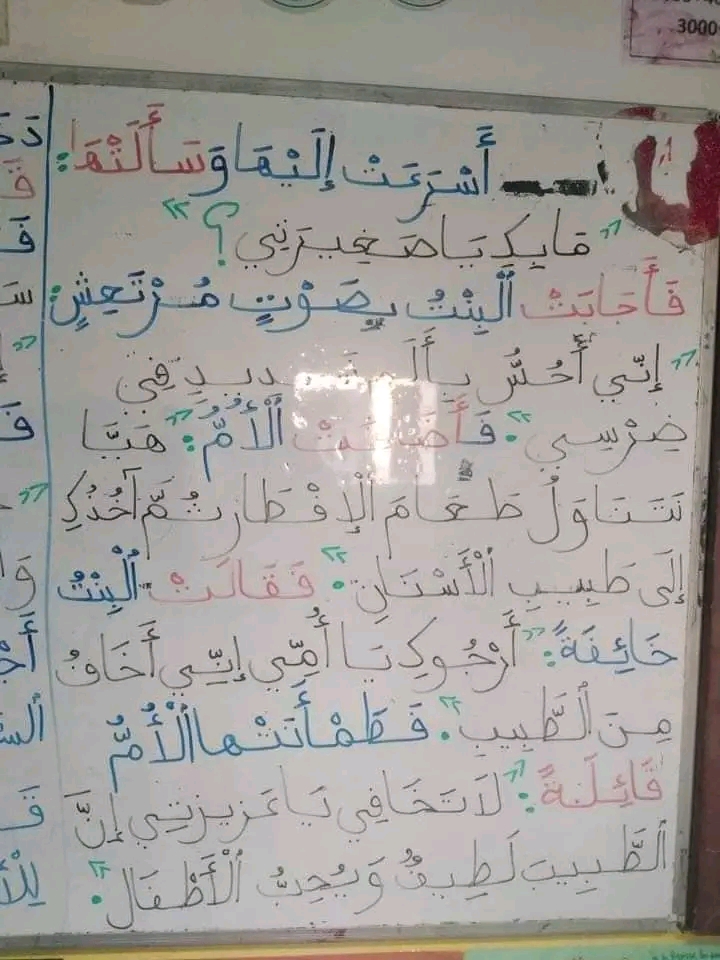 3000
أَسْرَعَتْ إِلَيْهَا وَسَأَلَتْهَا:
«مَا بِكِ يَا صَغِيرَتِي؟»
فَأَجَابَتْ ٱلْبِنْتُ بِصَوْتٍ مُرْتَعِشٍ:
«إِنِّي أَحُسُّ بِأَلَمٍ شَدِيدٍ فِي
ضِرْسِي». فَأَضَافَتْ ٱلْأُمُّ: «هَيَّا
نَتَنَاوَلُ طَعَامَ ٱلْإِفْطَارِ ثُمَّ آخُذُكِ
إِلَى طَبِيبِ ٱلْأَسْنَانِ». فَقَالَتْ ٱلْبِنْتُ
خَائِفَةً: «أَرْجُوكِ يَا أُمِّي إِنِّي أَخَافُ
مِنَ ٱلطَّبِيبِ». فَطَمْأَنَتْها ٱلْأُمُّ
قَائِلَةً: «لَا تَخَافِي يَا عَزِيزَتِي إِنَّ
ٱلطَّبِيبَ لَطِيفٌ وَيُحِبُّ ٱلْأَطْفَالَ».